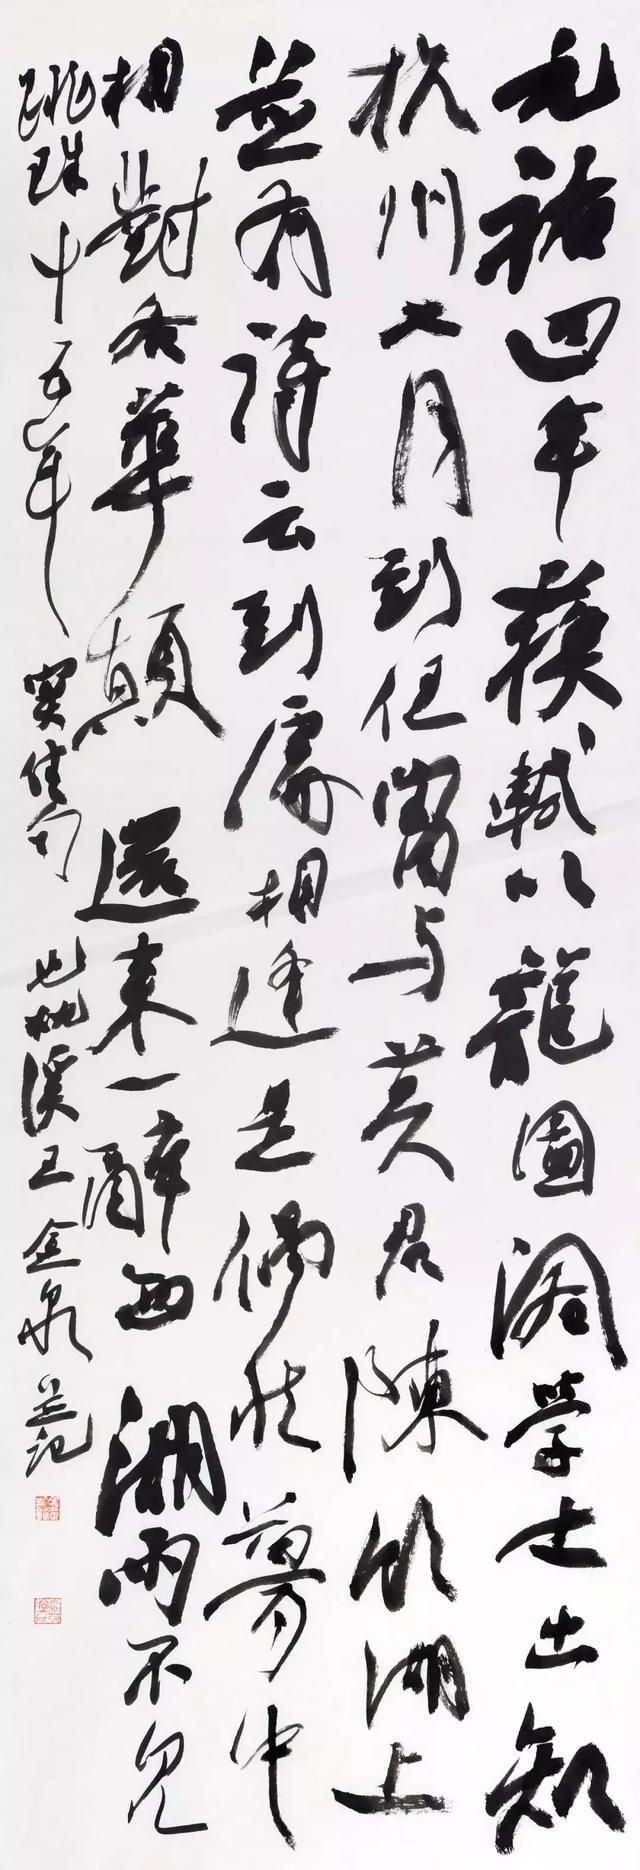 元祐四年蘇軾以龍圖閣學士出知
杭州七月到任嘗与莫君陳飲湖上
並有詩云到處相逢是偶然夢中
相對各華顛還來一醉西湖雨不見
跳珠十五年實佳句也溪王金泉並記